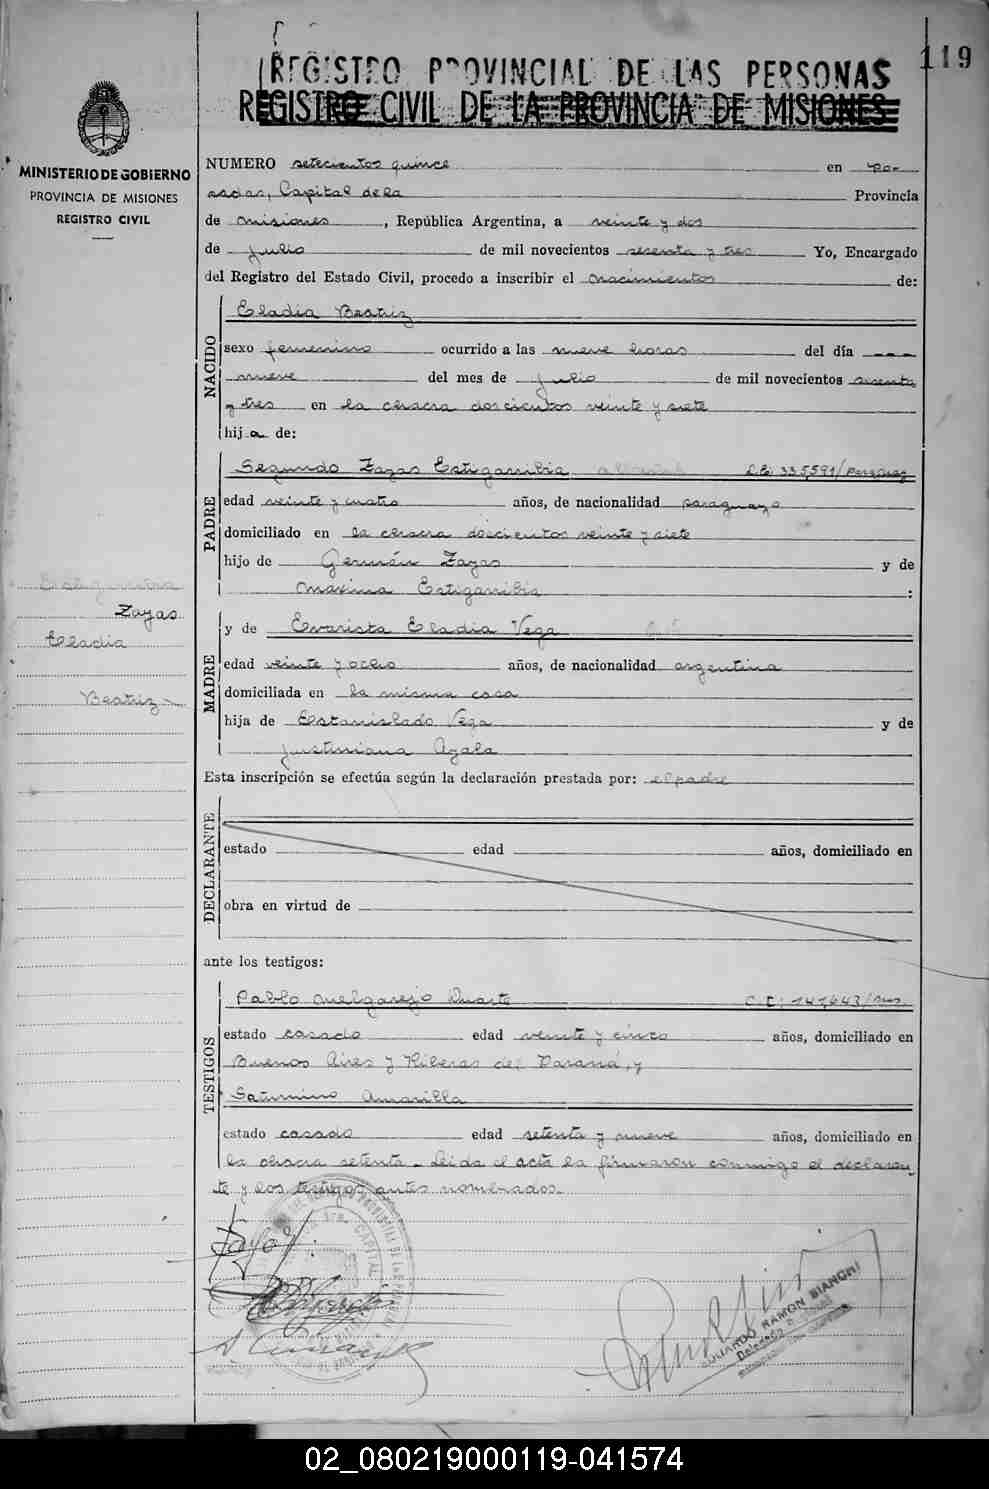 119
REGISTRO PROVINCIAL DE LAS PERSONAS
REGISTRO CIVIL DE LA PROVINCIA DE MISIONES
MINISTERIO DE GOBIERNO
PROVINCIA DE MISIONES
REGISTRO CIVIL
NUMERO setecientos quince en Po-
sadas, Capital de la Provincia
de Misiones, República Argentina, a veinte y dos
de Julio de mil novecientos sesenta y tres Yo, Encargado
del Registro del Estado Civil, procedo a inscribir el nacimientos de:
NACIDO
Eladia Beatriz
sexo femenino ocurrido a las nueve horas del día ---
nueve del mes de Julio de mil novecientos sesenta
y tres en la chacra doscientos veinte y siete
hija de:
PADRE
Segundo Zayas Estigarribia L.E. 335,591/
edad veinte y cuatro años, de nacionalidad paraguayo
domiciliado en la chacra doscientos veinte y siete
hijo de Germán Zayas y de
Maxima Estigarribia :
Estigarribia
Zayas
Eladia
Beatriz
MADRE
y de Evarista Eladia Vega
edad veinte y ocho años, de nacionalidad argentina
domiciliada en la misma casa
hija de Estanislado Vega y de
Justiniana Ayala
Esta inscripción se efectúa según la declaración prestada por: el padre
DECLARANTE
estado edad años, domiciliado en
obra en virtud de
ante los testigos:
TESTIGOS
Pablo Melgarejo Duarte C.I: 141,643/Mns.
estado casado edad veinte y cinco años, domiciliado en
Buenos Aires y Riberas del Paraná, y
Saturnino Amarilla
estado casado edad setenta y nueve años, domiciliado en
la chacra setenta.- Leida el acta la firmaron conmigo el declaran-
te y los testigos antes nombrados.
Zayas
CAPITAL
JULIARDO RAMON BIANCHI
Delegado
02_080219000119-041574